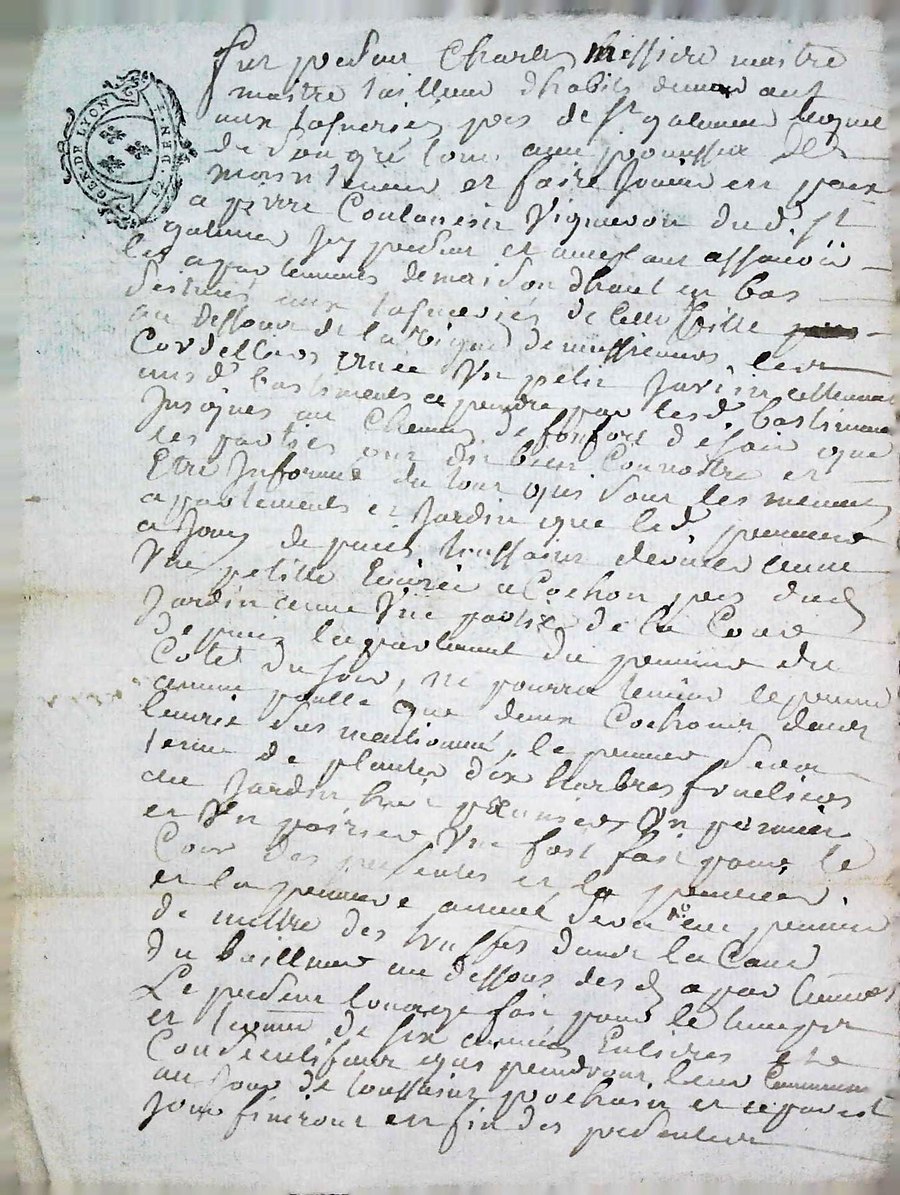 GEN DE LYON
Fut present Charles Messire maitre
maitre tailleur dhabits demeurant
aux tasneries pres de St galmier lequel
de son gré loue avec promesse de
maintenir et faire jouir en paix
a pierre Vigneron dud. St
galmier icy present et acceptant assavoir
les apartements de maison dhaut en bas
scitués aux tasneries de cette Ville
au dessous de la Vigne de messieurs les
Cordelliers Vn petit Jardin attenant
aus d. bastiments a prendre par lesd. bastiments
Jusques au Chemin de fonfort de façon que
les parties ont dit bien Connoitre et
Etre Informé du tout qui sont les memes
apartements et Jardin que led. preneur
a Jouy depuis toussaint dernier comme
Vne petitte Ecurie a Cochon pres dud.
Jardin comme Vne partie de la Cour
depuis lapartement du preneur du
Coté du soir, ne pourra tenir le preneur
que deux Cochons dans
lecurie sus mentionné, le preneur sera
tenu de planter dix harbres fruitiers
au Jardin huit pruniers Vn pomier
et Vn poirier Vne fois fait pendant le
Cour des presentes et la premiere
et la premiere année sera preneur
de mettre des truffes dans la Cave
du bailleur au dessous des d. apartements
Le present louage fait pour le temps
et terme de six années Entieres et
Consecutifves qui prendront leur Commencement
au Jour de toussaint prochain et a pareil
Jour finiront en fin des presentes